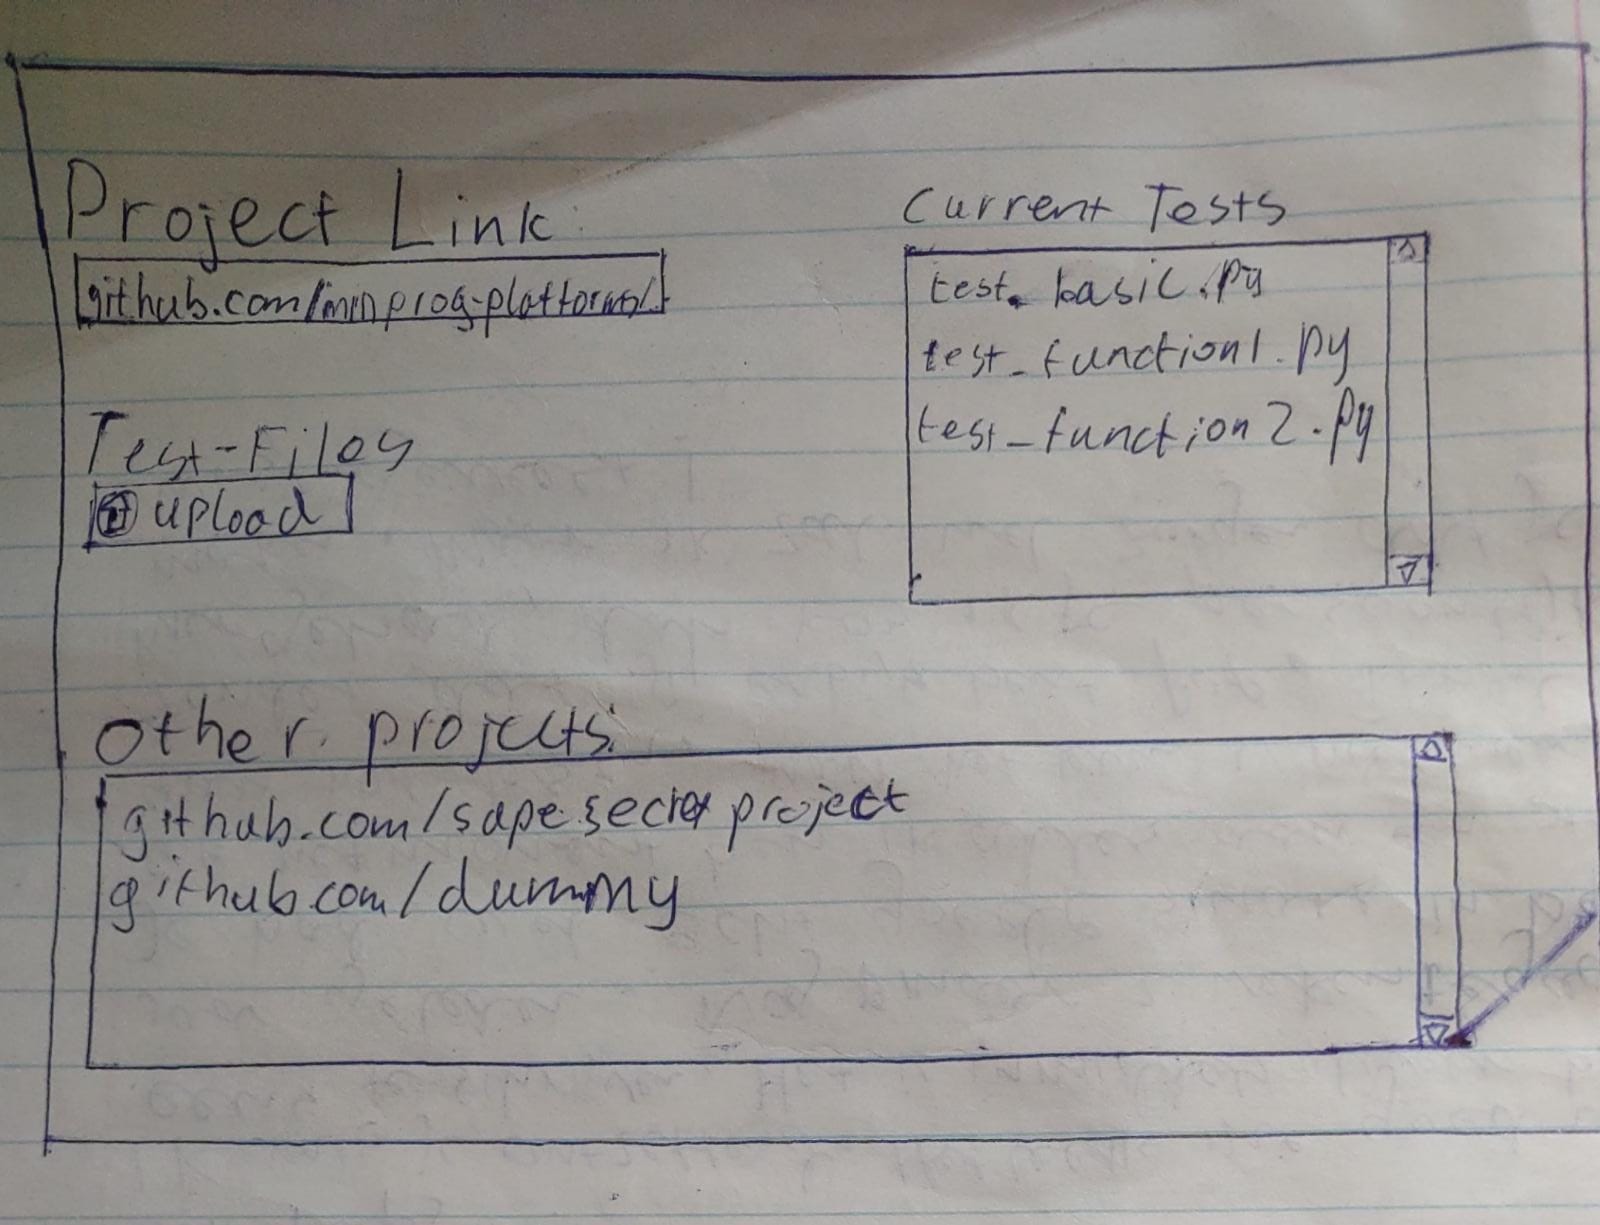 Project Link:
github.com/minprog-platforms/
Test-Files
upload
Current Tests
test_basic.py
test_function1.py
test_function2.py
Other projects:
github.com/sape.secret project
github.com/dummy